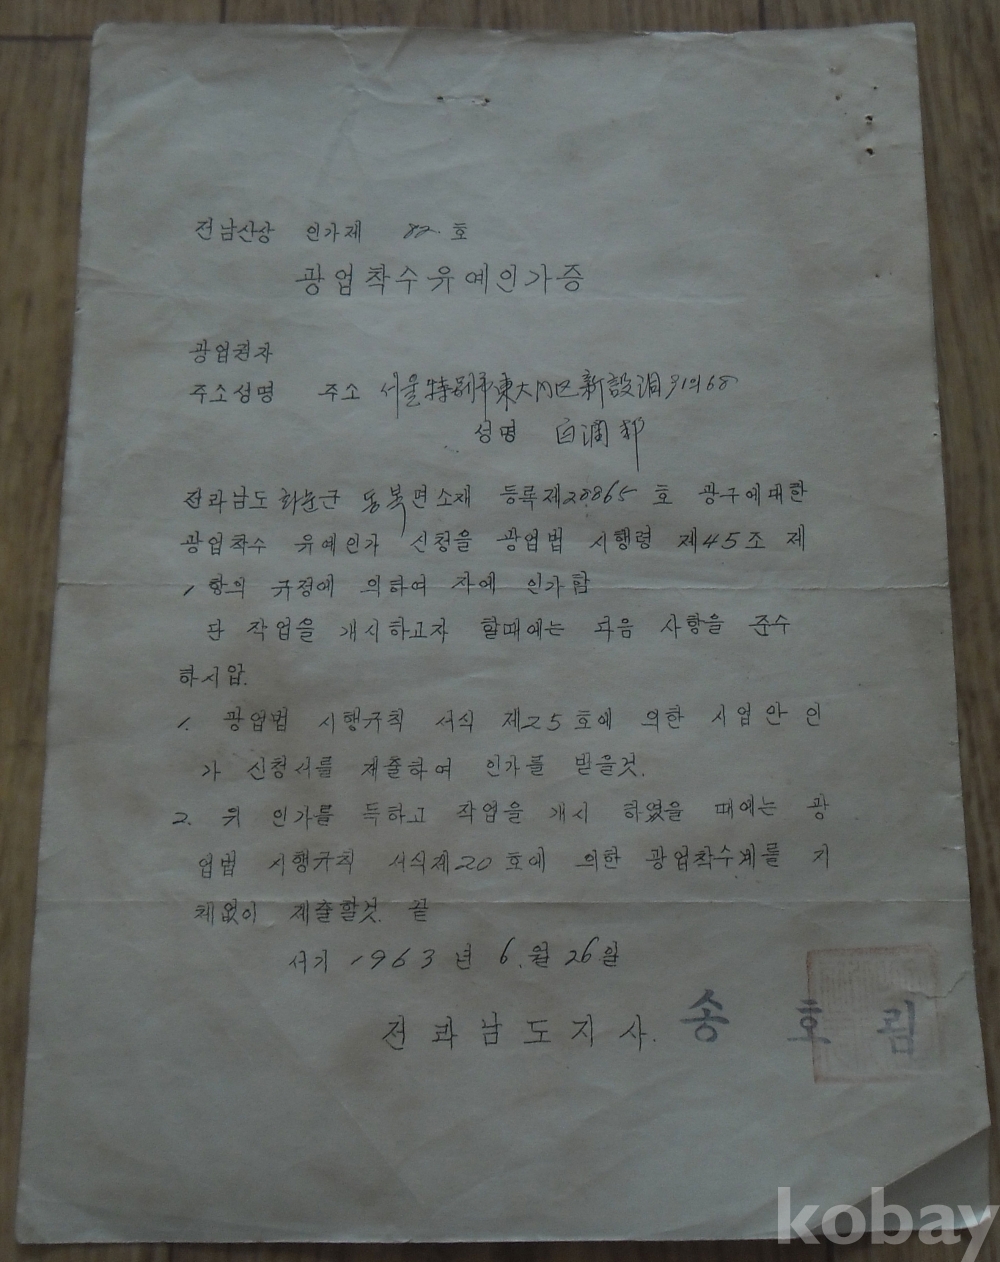 전남산상 인가제 82. 호
광업착수유예인가증
광업권자
주소성명 주소 서울特別市東大門区新設洞91의68
성명 白潤
전라남도 화순군 동복면소재 등록제28865 호 광구에대한
광업착수 유예인가 신청을 광업법 시행령 제45조 제
1항의 규정에 의하여 자에 인가함
단 작업을 개시하고자 할때에는 다음 사항을 준수
하시압.
1. 광업법 시행규칙 서식 제25호에 의한 사업안인
가 신청서를 제출하여 인가를 받을것.
2. 위 인가를 득하고 작업을 개시 하였을 때에는 광
업법 시행규칙 서식제20호에 의한 광업착수계를 지
체없이 제출할것. 끝
서기 1963 년 6.월 26일
전라남도지사. 송호림
kobay